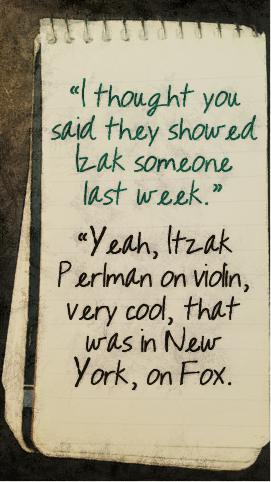 “I thought you
said they showed
Izak someone
last week.”
“Yeah, Itzak
Perlman on violin,
very cool, that
was in New
York, on Fox.